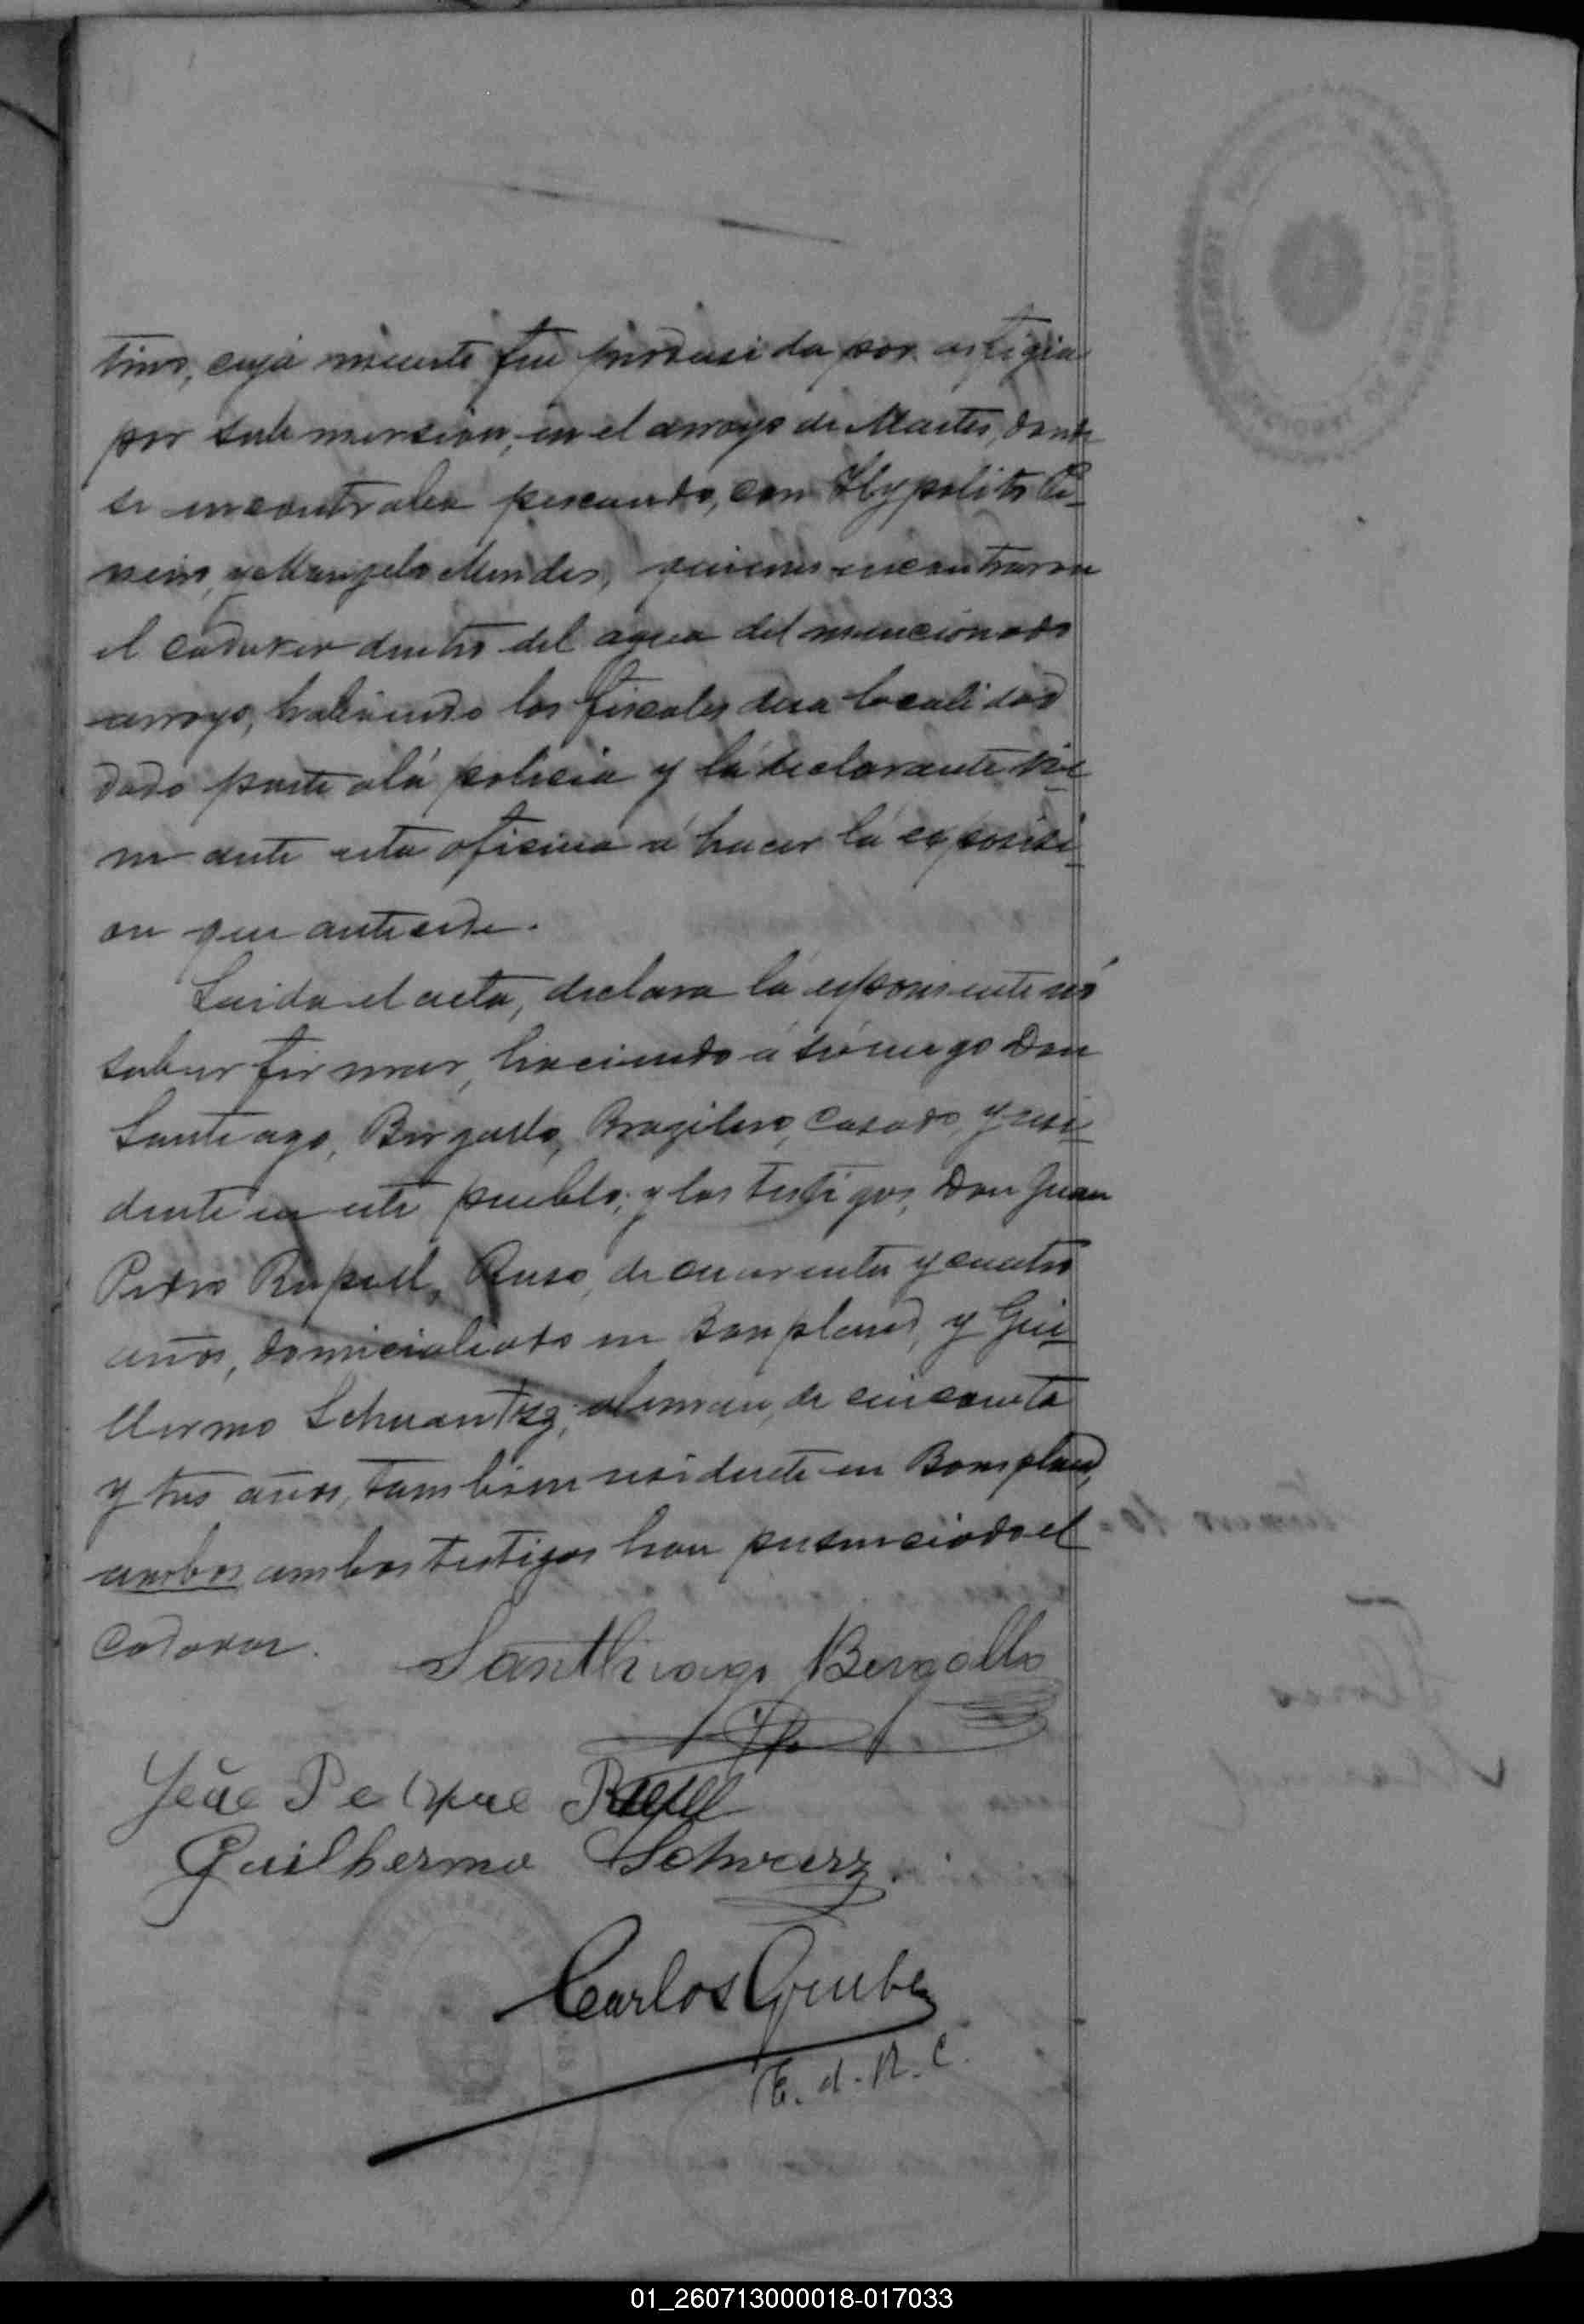 tino, cuya muerte fue produsida por asfigia
por submersion, en el arroyo de Martes, donde
se encontraba pescando, con Hypolito Pi-
neiro, y Marizela Mendes, quienes encontraron
el cadaver dentro del agua del mencionado
arroyo, habiendo los fiscales de la localidad
dado parte alá policia y lá declarante vie-
ne ante esta oficina á hacer lá exposisi-
on que antecede.
Leida el acta, declara lá exponiente nó
saber firmar, haciendo á su ruego Don
Santiago, Bergallo, Brazilero, casado, y resi-
dente en este pueblo; y los testigos, Don Juan
Pedro Ruppell, Ruso, de cuarenta y cuatro
años, domicialiado en Bonpland, y Gui-
llermo Schwantsz, aleman, de cincuenta
y tres años, tambien residente en Bompland,
ambos ambos testigos han presenciado el
cadaver. Santhiago Bergallo
Guilhermo Schwarz
Carlos Gruber
E. d. R. C.
01_260713000018-017033